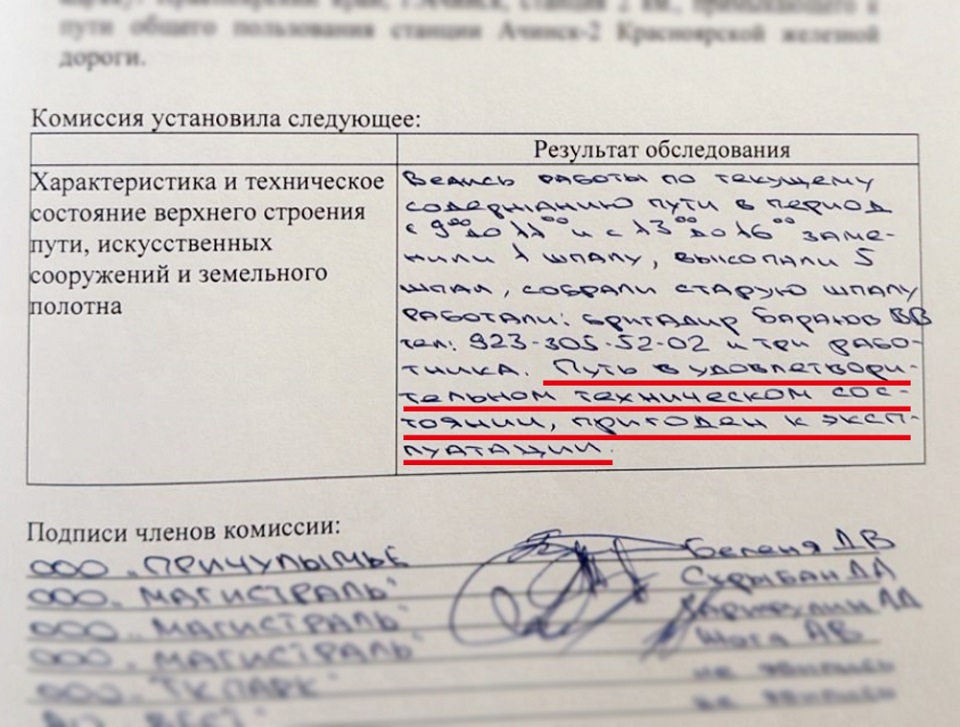 пути общего пользования станции Ачинск-2 Красноярской железной
дороги.
Комиссия установила следующее:
Результат обследования
Характеристика и техническое
состояние верхнего строения
пути, искусственных
сооружений и земельного
полотна
Велись работы по текущему
содержанию пути в период
с 9⁰⁰ до 11⁰⁰ и с 13⁰⁰ до 16⁰⁰ заме-
нили 1 шпалу, выкопали 5
шпал, собрали старую шпалу
работали: бригадир Баранов ВВ
тел: 923-305-52-02 и три рабо-
тника. Путь в удовлетвори-
тельном техническом сос-
тоянии, пригоден к эксп-
луатации.
Подписи членов комиссии:
ООО "ПРИЧУЛЫМЬЕ Бегеня ДВ
ООО "МАГИСТРАЛЬ" Скрыбан
ООО "МАГИСТРАЛЬ"
ООО "МАГИСТРАЛЬ" Шога АВ
ООО "ТК ПАРК" не явились
не явились